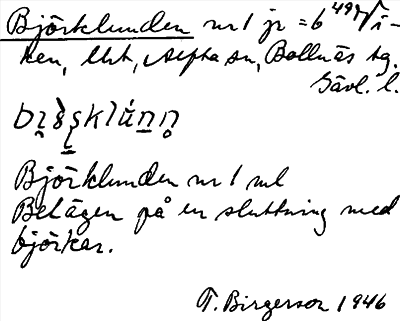 Björklunden nr 1 jr = 6 49 Vi-
ken, Uht, Alfta sn, Bollnäs tg.
Gävl. l.
Björklunden nr 1 ml
Belägen på en sluttning med
björkar.
T. Birgerson 1946